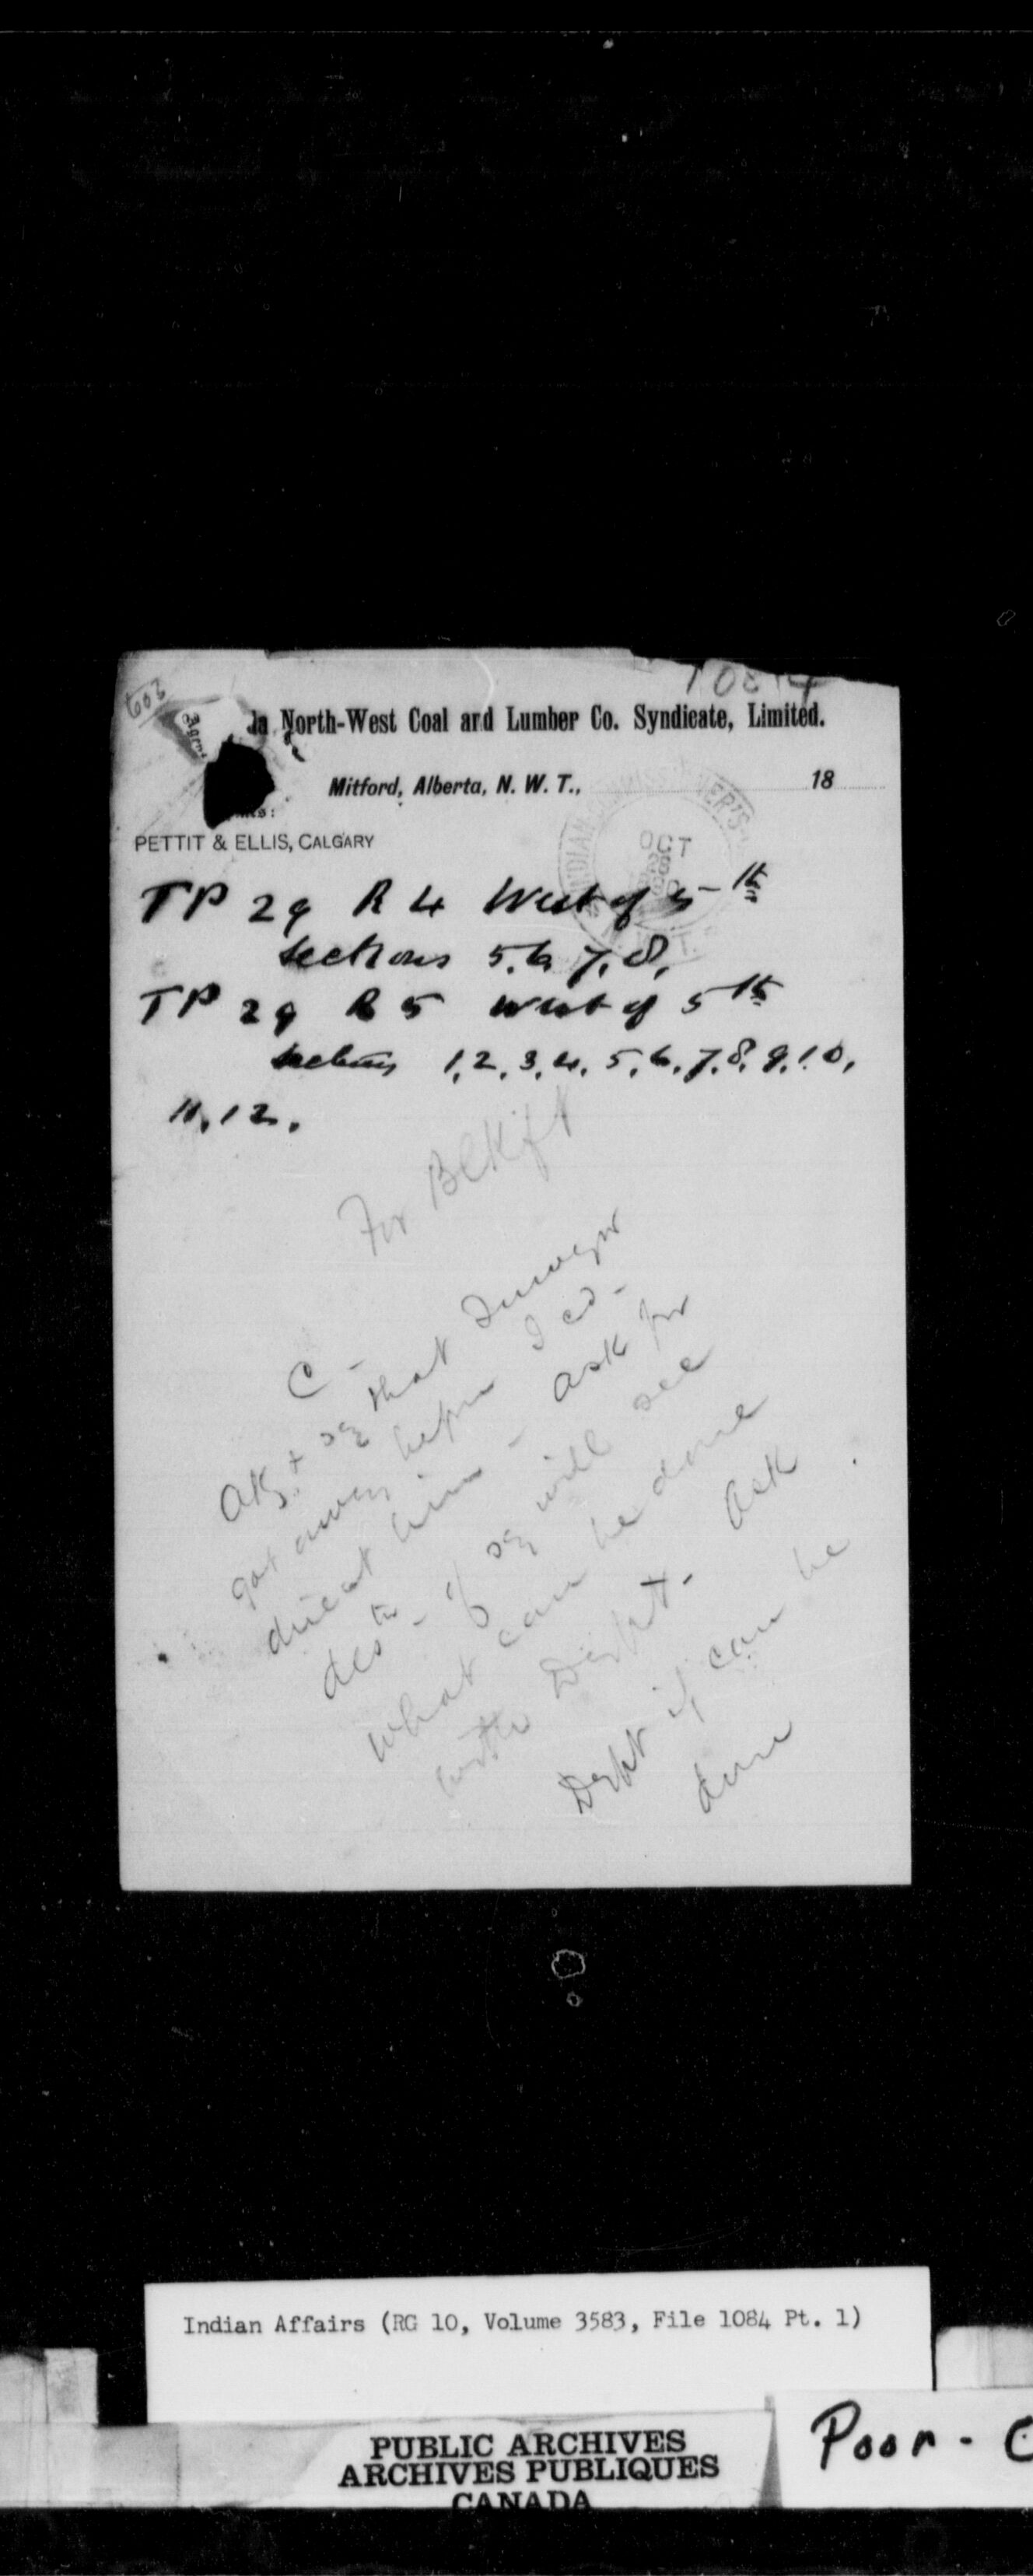 10814
603
da North-West Coal and Lumber Co. Syndicate, Limited.
Mitford, Alberta, N. W. T., 18
PETTIT & ELLIS, CALGARY
INDIAN COMMISSIONER'S
OCT
28
TP 29 R 4 West of 5th
sections 5.6.7.8.
TP 29 R 5 West of 5th
sections 1.2.3.4.5.6.7.8.9.10.
11.12.
For
C -
that Surveyor
got away before I cd-
direct him - ask for
if will see
what can be done
with Deptt. Ask
Deptt if can be
done
Indian Affairs (RG 10, Volume 3583, File 1084 Pt. 1)
PUBLIC ARCHIVES
ARCHIVES PUBLIQUES
CANADA
Poor - C